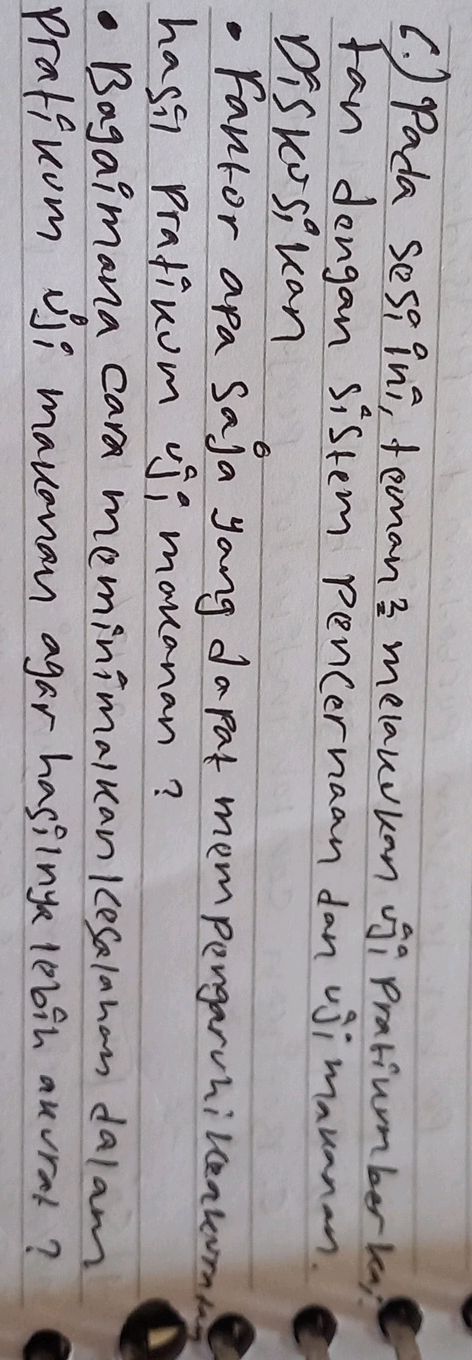 6.) Pada sesi ini, teman2 melakukan uji Pratikum berkai
tan dengan sistem pencernaan dan uji makanan.
Diskusikan
• Faktor apa saja yang dapat mempengaruhi
hasil Pratikum uji makanan ?
• Bagaimana cara meminimalkan kesalahan dalam
Pratikum uji makanan agar hasilnya lebih akurat ?